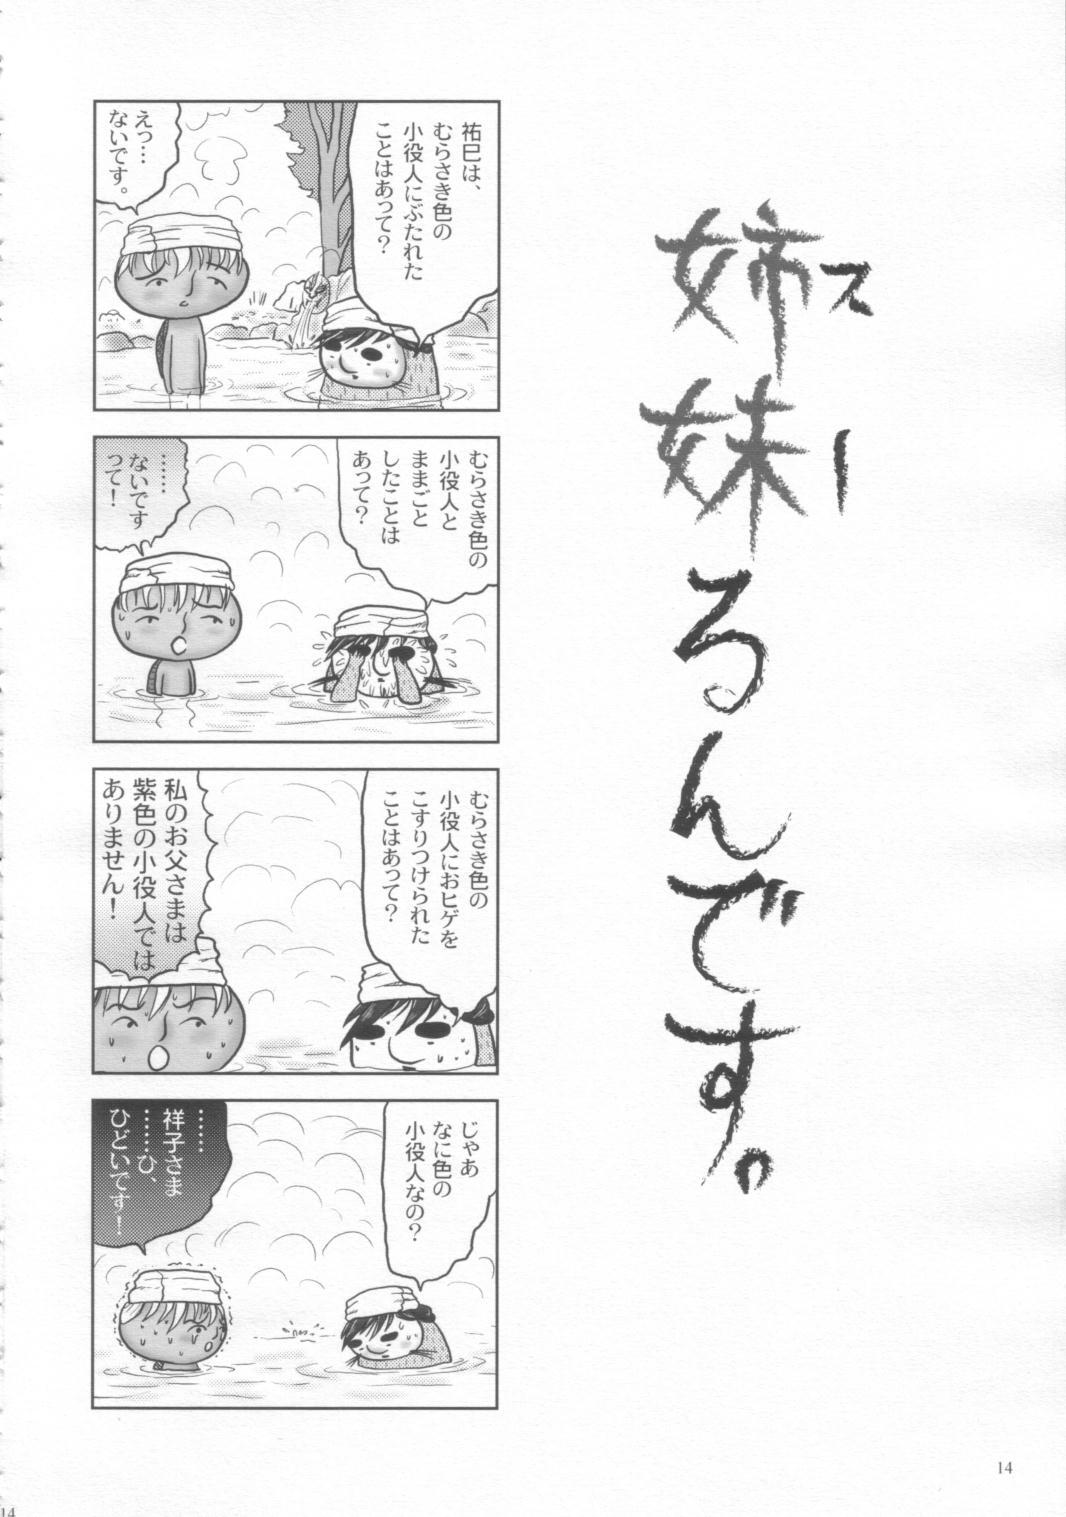 姉妹るんです。
スー
祐巳は、
むらさき色の
小役人にぶたれた
ことはあって？
えっ…
ないです。
むらさき色の
小役人と
ままごと
したことは
あって？
……
ないです
って！
むらさき色の
小役人におヒゲを
こすりつけられた
ことはあって？
私のお父さまは
紫色の小役人では
ありません！
じゃあ
なに色の
小役人なの？
……
祥子さま
……ひ、
ひどいです！
14
14